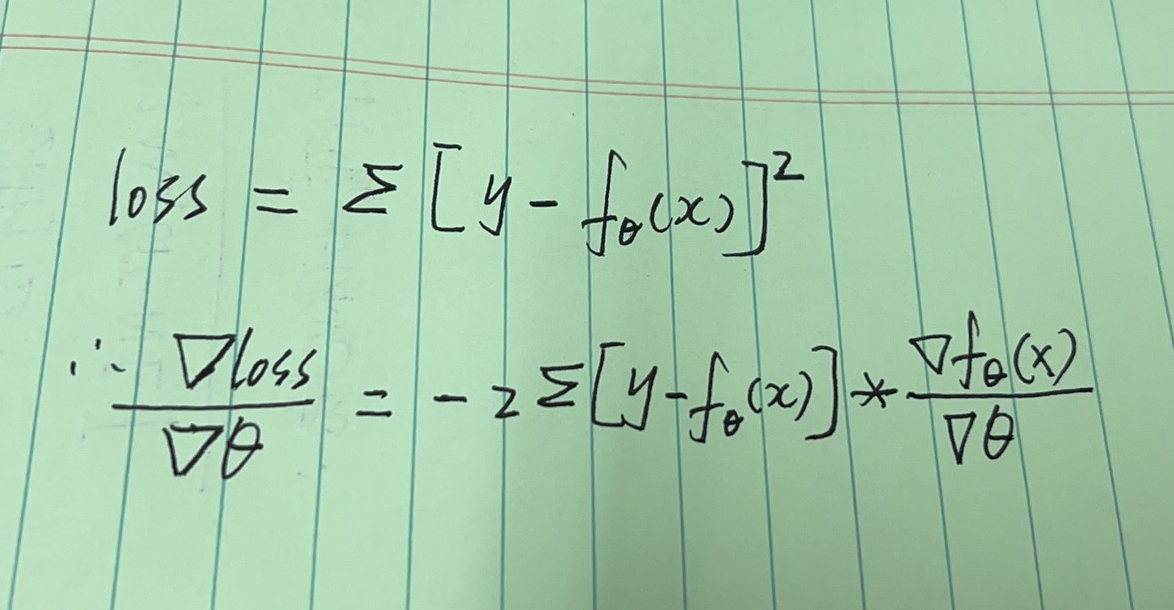 loss = Σ [y - f_θ(x)]²
∴ ∇loss/∇θ = -2 Σ[y - f_θ(x)] * ∇f_θ(x)/∇θ